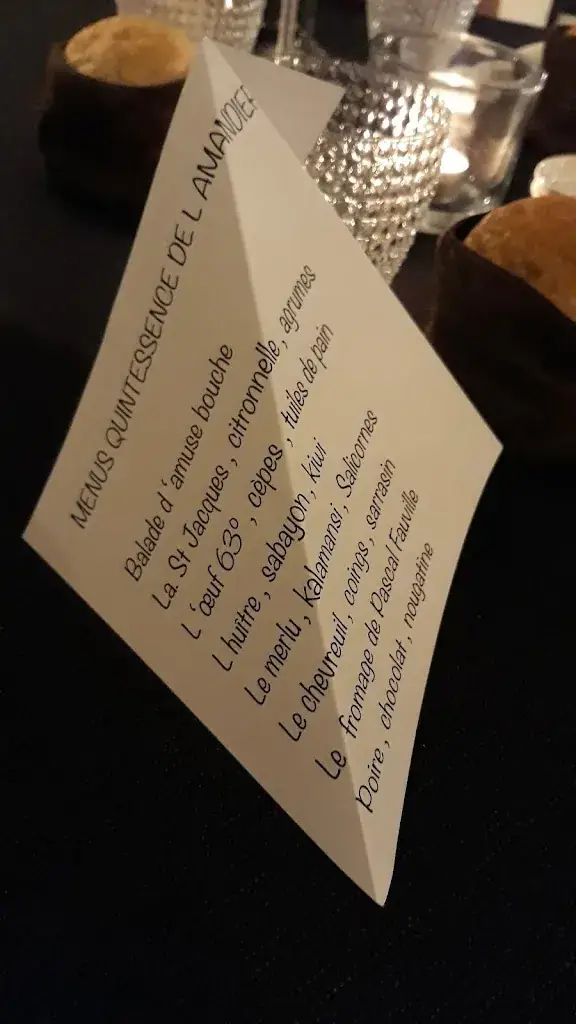 MENUS QUINTESSENCE DE L AMANDIER
Balade d'amuse bouche
La St Jacques, citronnelle, agrumes
L'œuf 63°, cèpes, tuiles de pain
L huître, sabayon, kiwi
Le merlu, kalamansi, Salicornes
Le chevreuil, coings, sarrasin
Le fromage de Pascal Fauville
Poire, chocolat, nougatine